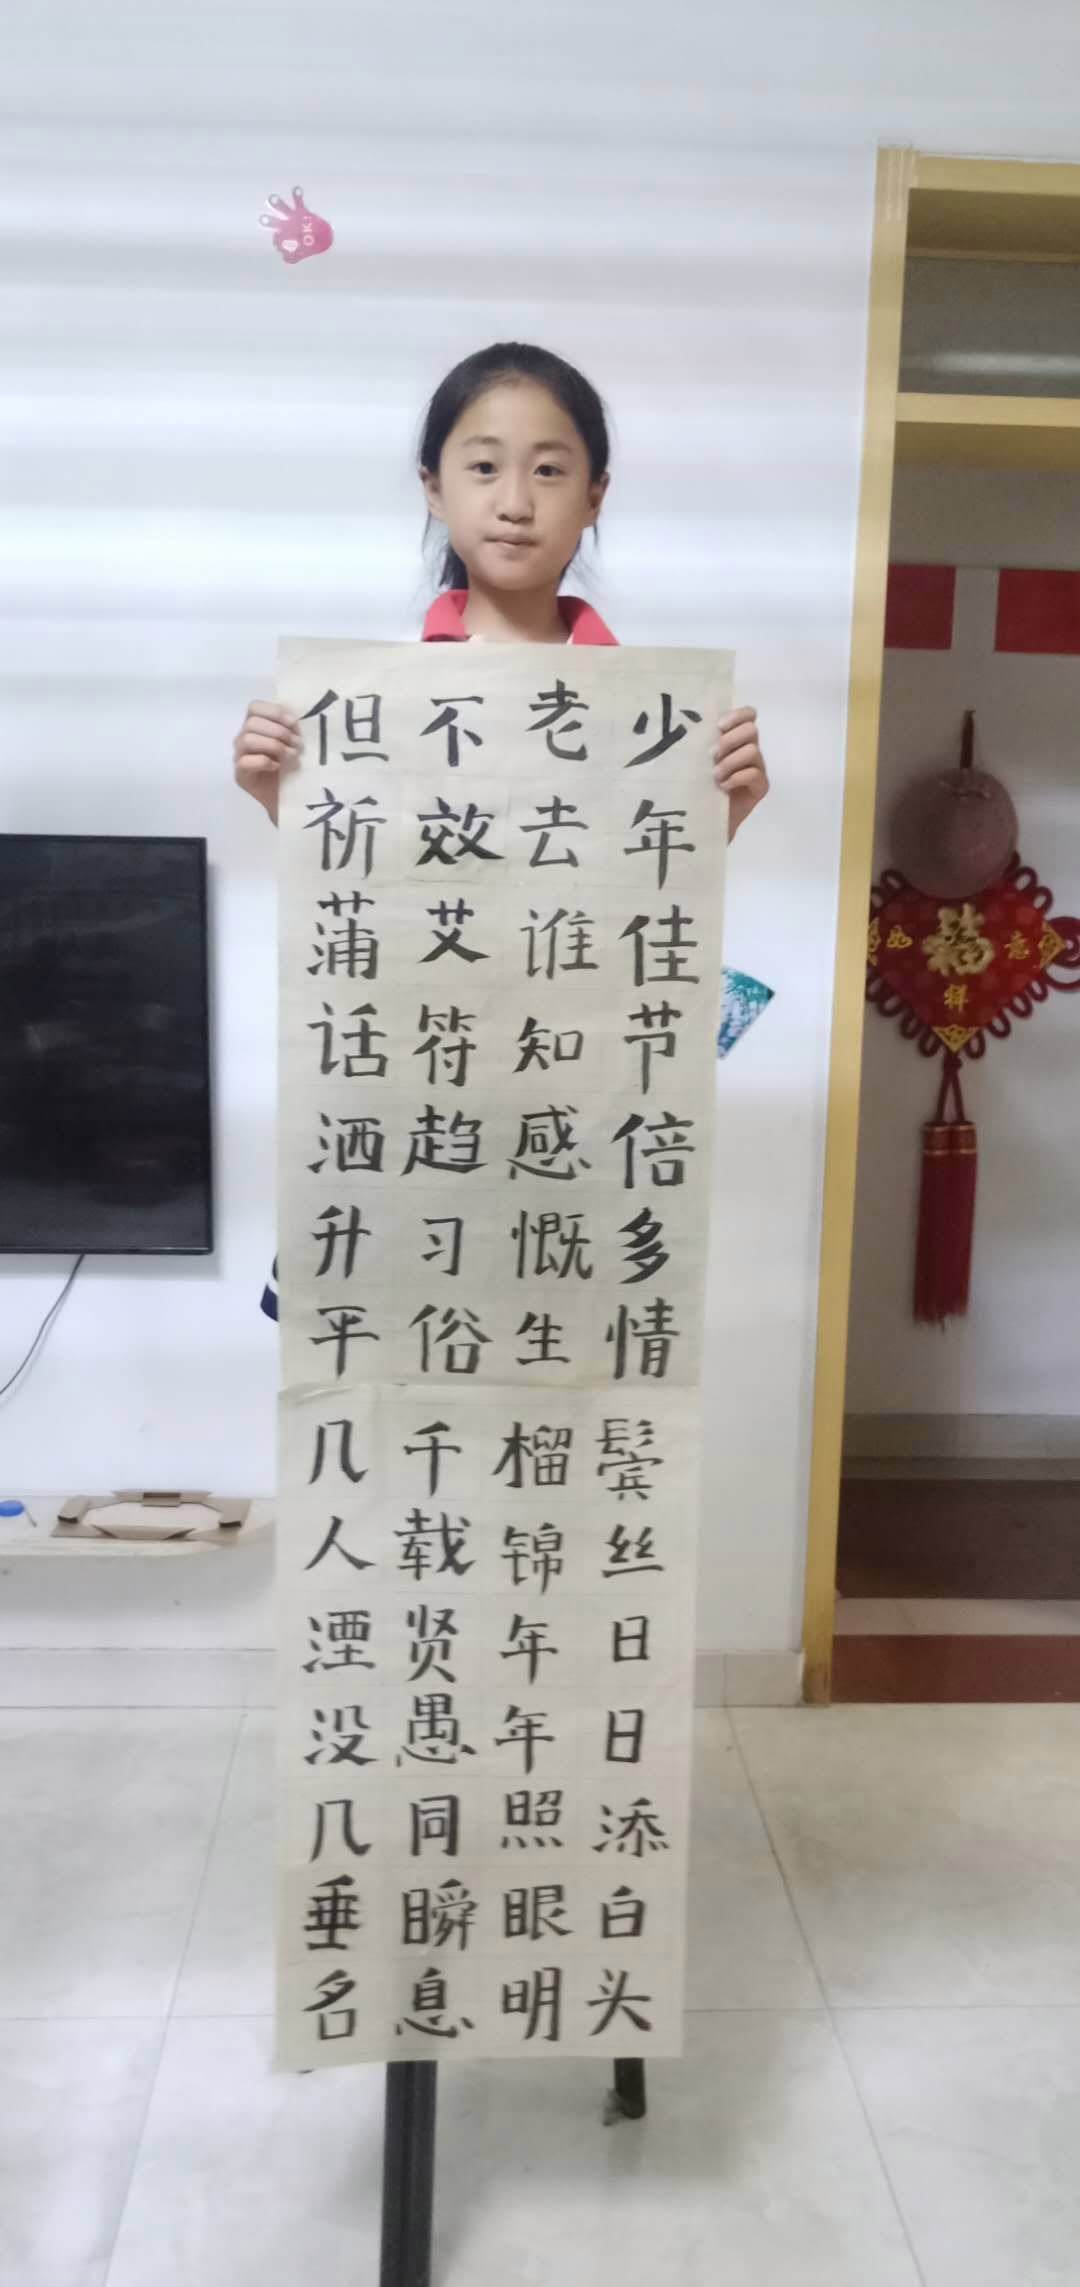 少年佳节倍多情鬓丝日日添白头
老去谁知感慨生榴锦年年照眼明
不效艾符趋习俗千载贤愚同瞬息
但祈蒲话洒升平几人湮没几垂名
OK!
福
如
意
祥